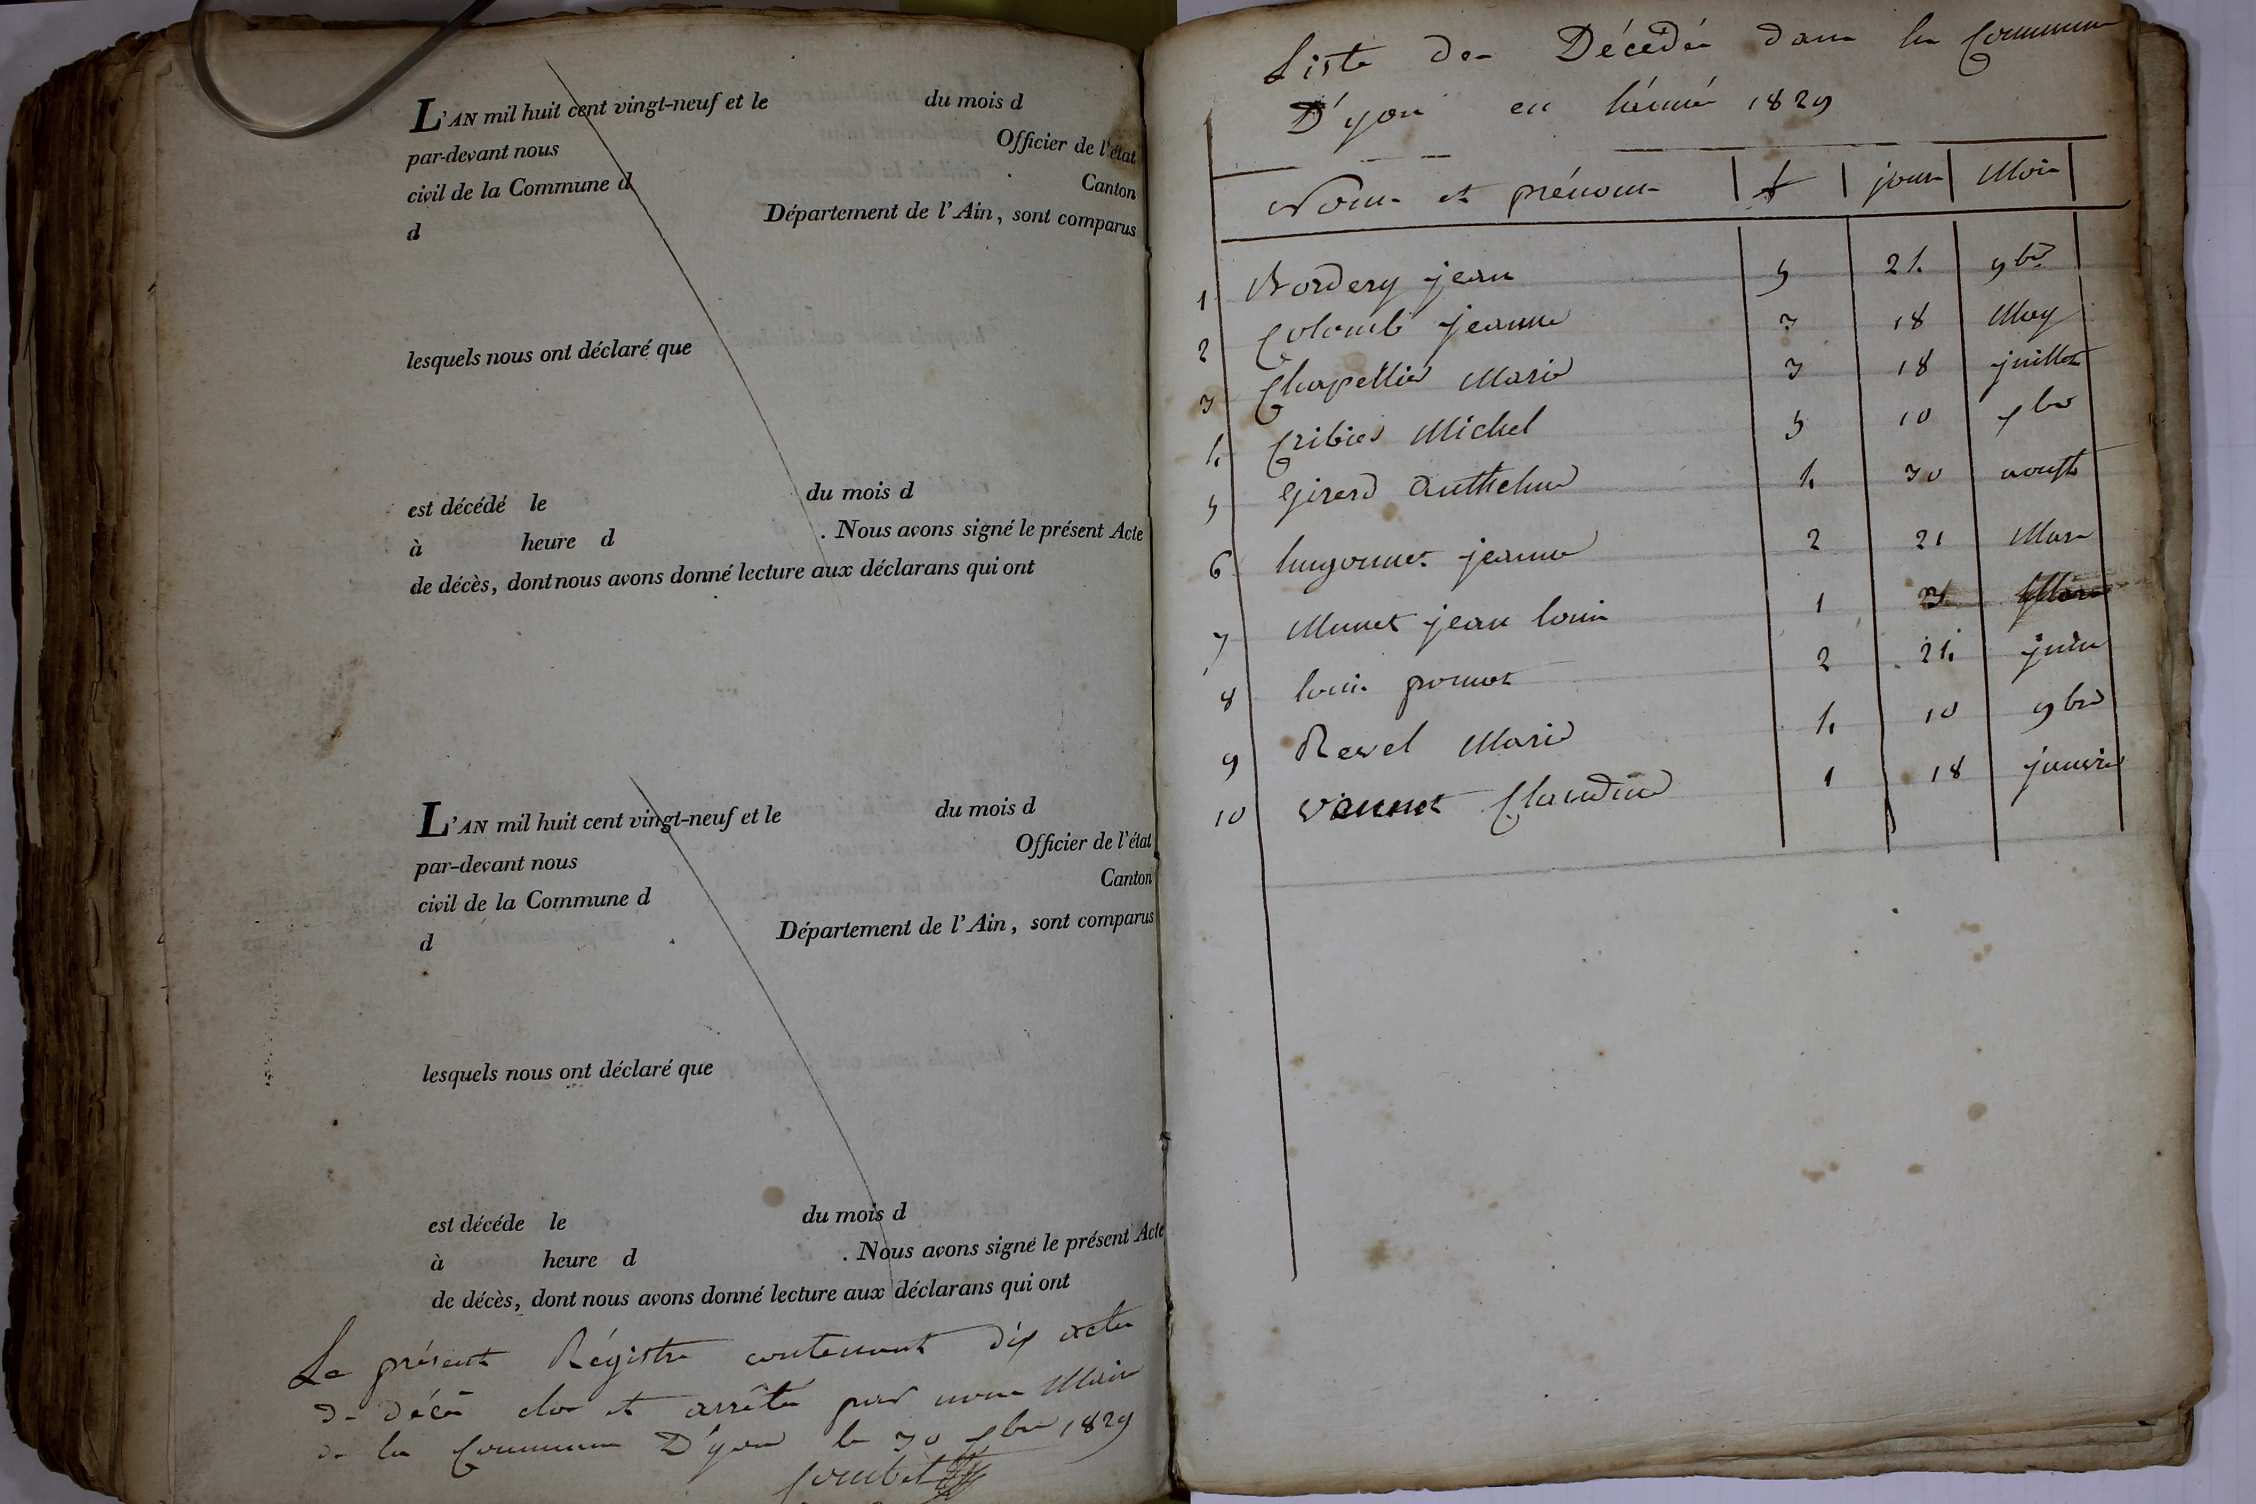 L'AN mil huit cent vingt-neuf et le du mois d
par-devant nous Officier de l'état
civil de la Commune d Canton
d Département de l'Ain, sont comparus
lesquels nous ont déclaré que
est décédé le du mois d
à heure d . Nous avons signé le présent Acte
de décès, dont nous avons donné lecture aux déclarans qui ont
L'AN mil huit cent vingt-neuf et le du mois d
par-devant nous Officier de l'état
civil de la Commune d Canton
d Département de l'Ain, sont comparus
lesquels nous ont déclaré que
est décéde le du mois d
à heure d . Nous avons signé le présent Acte
de décès, dont nous avons donné lecture aux déclarans qui ont
Le présent Régistre contenant dix actes
de décès clos et arrêté par nous Maire
de la Commune D'yon le 30 xbre 1829
Liste des Décédés dans la Commune
D'yon en l'année 1829
Noms et prénoms f jours Mois
1 Bordery jean 5 24 9bre
2 Colomb jeanne 3 18 May
3 Chapellier Marie 3 18 juillet
4 Cribier Michel 5 10 xbre
5 Girerd Anthelme 4 30 aoust
6 hugonnet jeanne 2 21 Mars
7 Munet jean louis 1
8 louis promot 2 24 juin
9 Revel Marie 4 10 9bre
10 Vannet Claudine 1 18 janvier